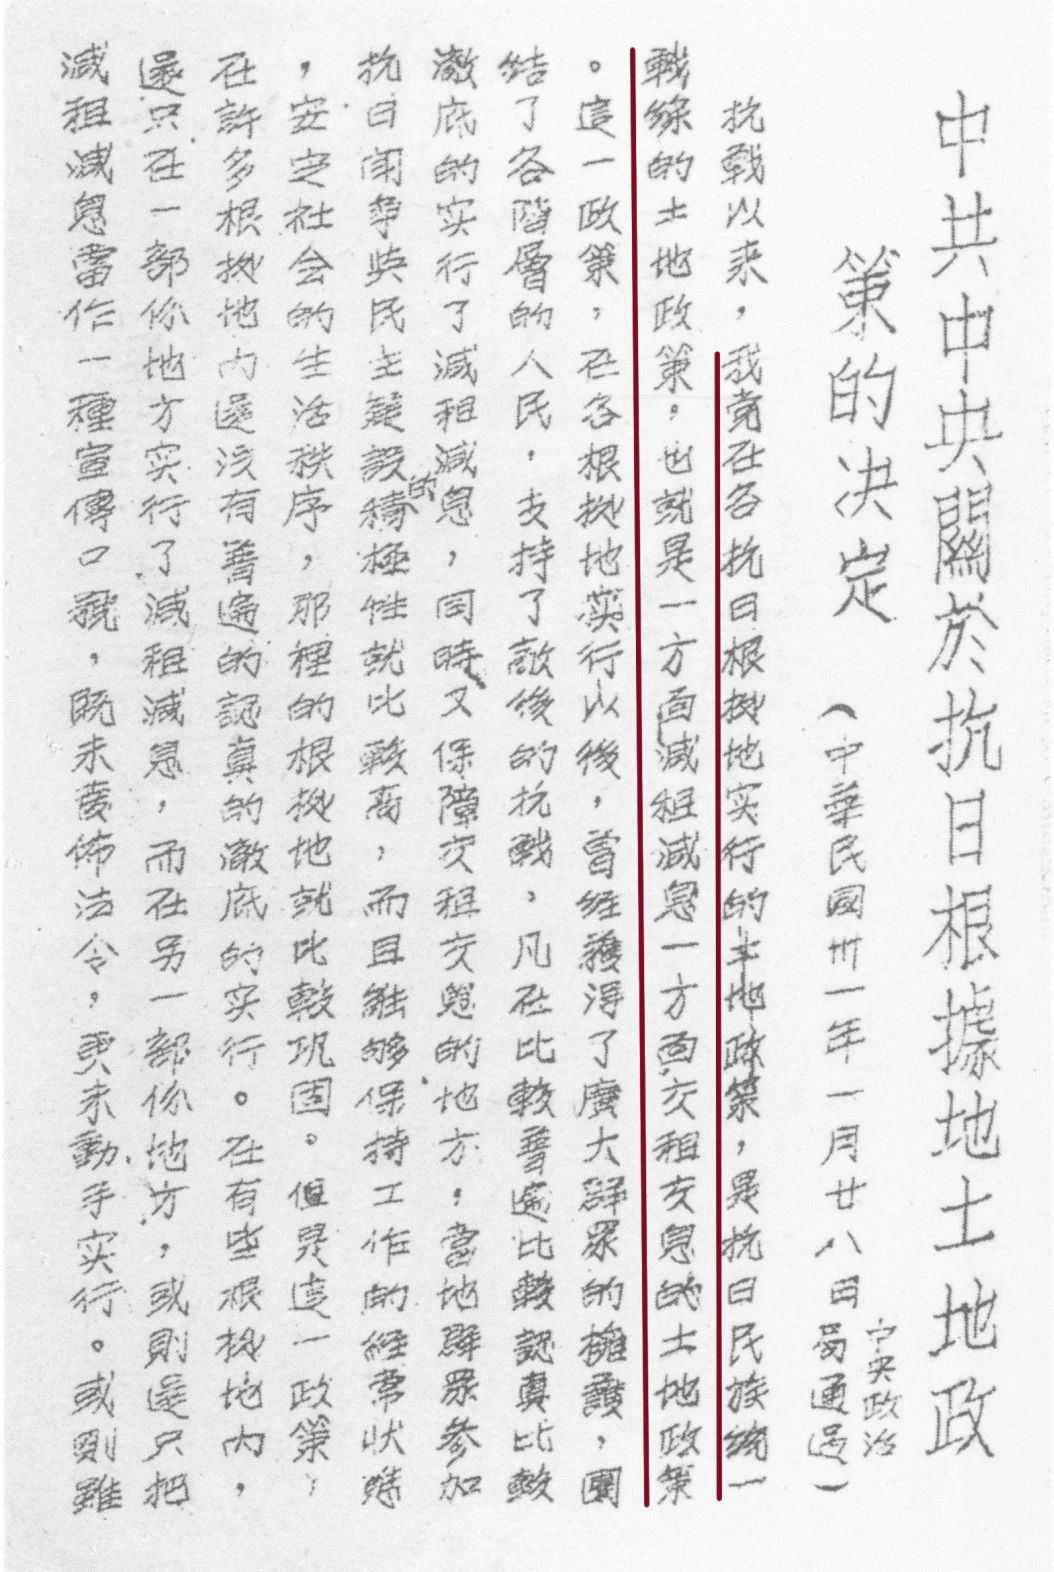 中共中央關於抗日根據地土地政
策的决定
（中華民國卅一年一月廿八日中央政治局通過）
抗戰以来，我党在各抗日根挞地实行的土地政策，是抗日民族統一
戰線的土地政策。也就是一方面减租减息一方面交租交息的土地政策
。這一政策，在各根挞地实行以後，曾经獲得了廣大群眾的擁護，團
结了各階層的人民，支持了敵後的抗戰，凡在比較普遍比較認真比較
澈底的实行了减租减息，同時又保障交租交息的地方，當地群眾參加
抗日闘爭與民主建設的積極性就比較高，而且能够保持工作的經常状態
，安定社会的生活秩序，那裡的根挞地就比較巩固。但是這一政策，
在許多根挞地内還没有普遍的認真的澈底的实行。在有些根挞地内，
還只在一部份地方实行了减租减息，而在另一部份地方，或則還只把
减租减息當作一種宣傳口號，既未發佈法令，更未動手实行。或則雖